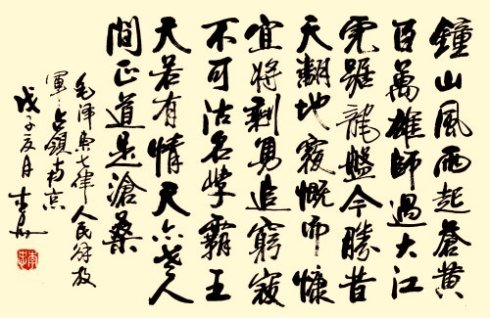 鐘山風雨起蒼黄
百萬雄師過大江
虎踞龍盤今勝昔
天翻地覆慨而慷
宜將剩勇追窮寇
不可沽名學霸王
天若有情天亦老人
間正道是滄桑
毛澤東七律人民解放
軍占領南京
戊子夏月李